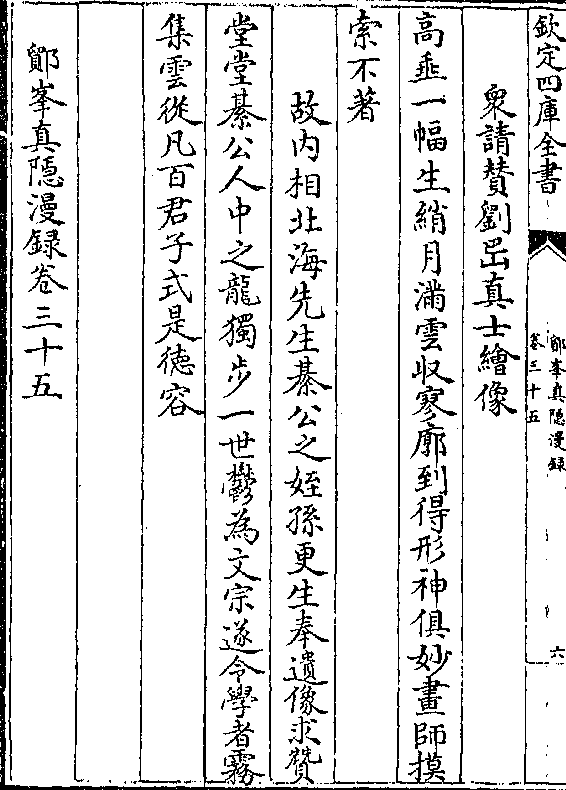 欽定四庫全書
鄮峯真隱漫録
卷三十五
六
衆請賛劉岊真士繪像
高垂一幅生綃月滿雲収寥廓到得形神俱妙畫師摸
索不著
故内相北海先生綦公之姪孫更生奉遺像求贊
堂堂綦公人中之龍獨步一世鬱為文宗遂令學者霧
集雲從凡百君子式是德容
鄮峯真隱漫録卷三十五